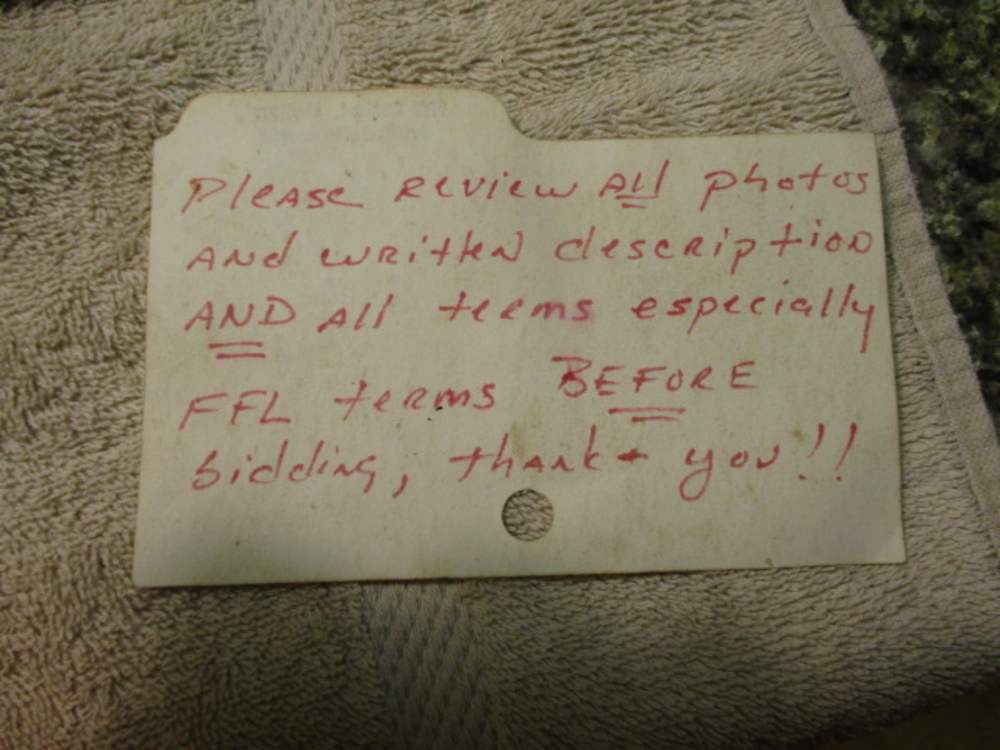 Please review All photos
And written description
AND All terms especially
FFL terms BEFORE
bidding, thank you!!